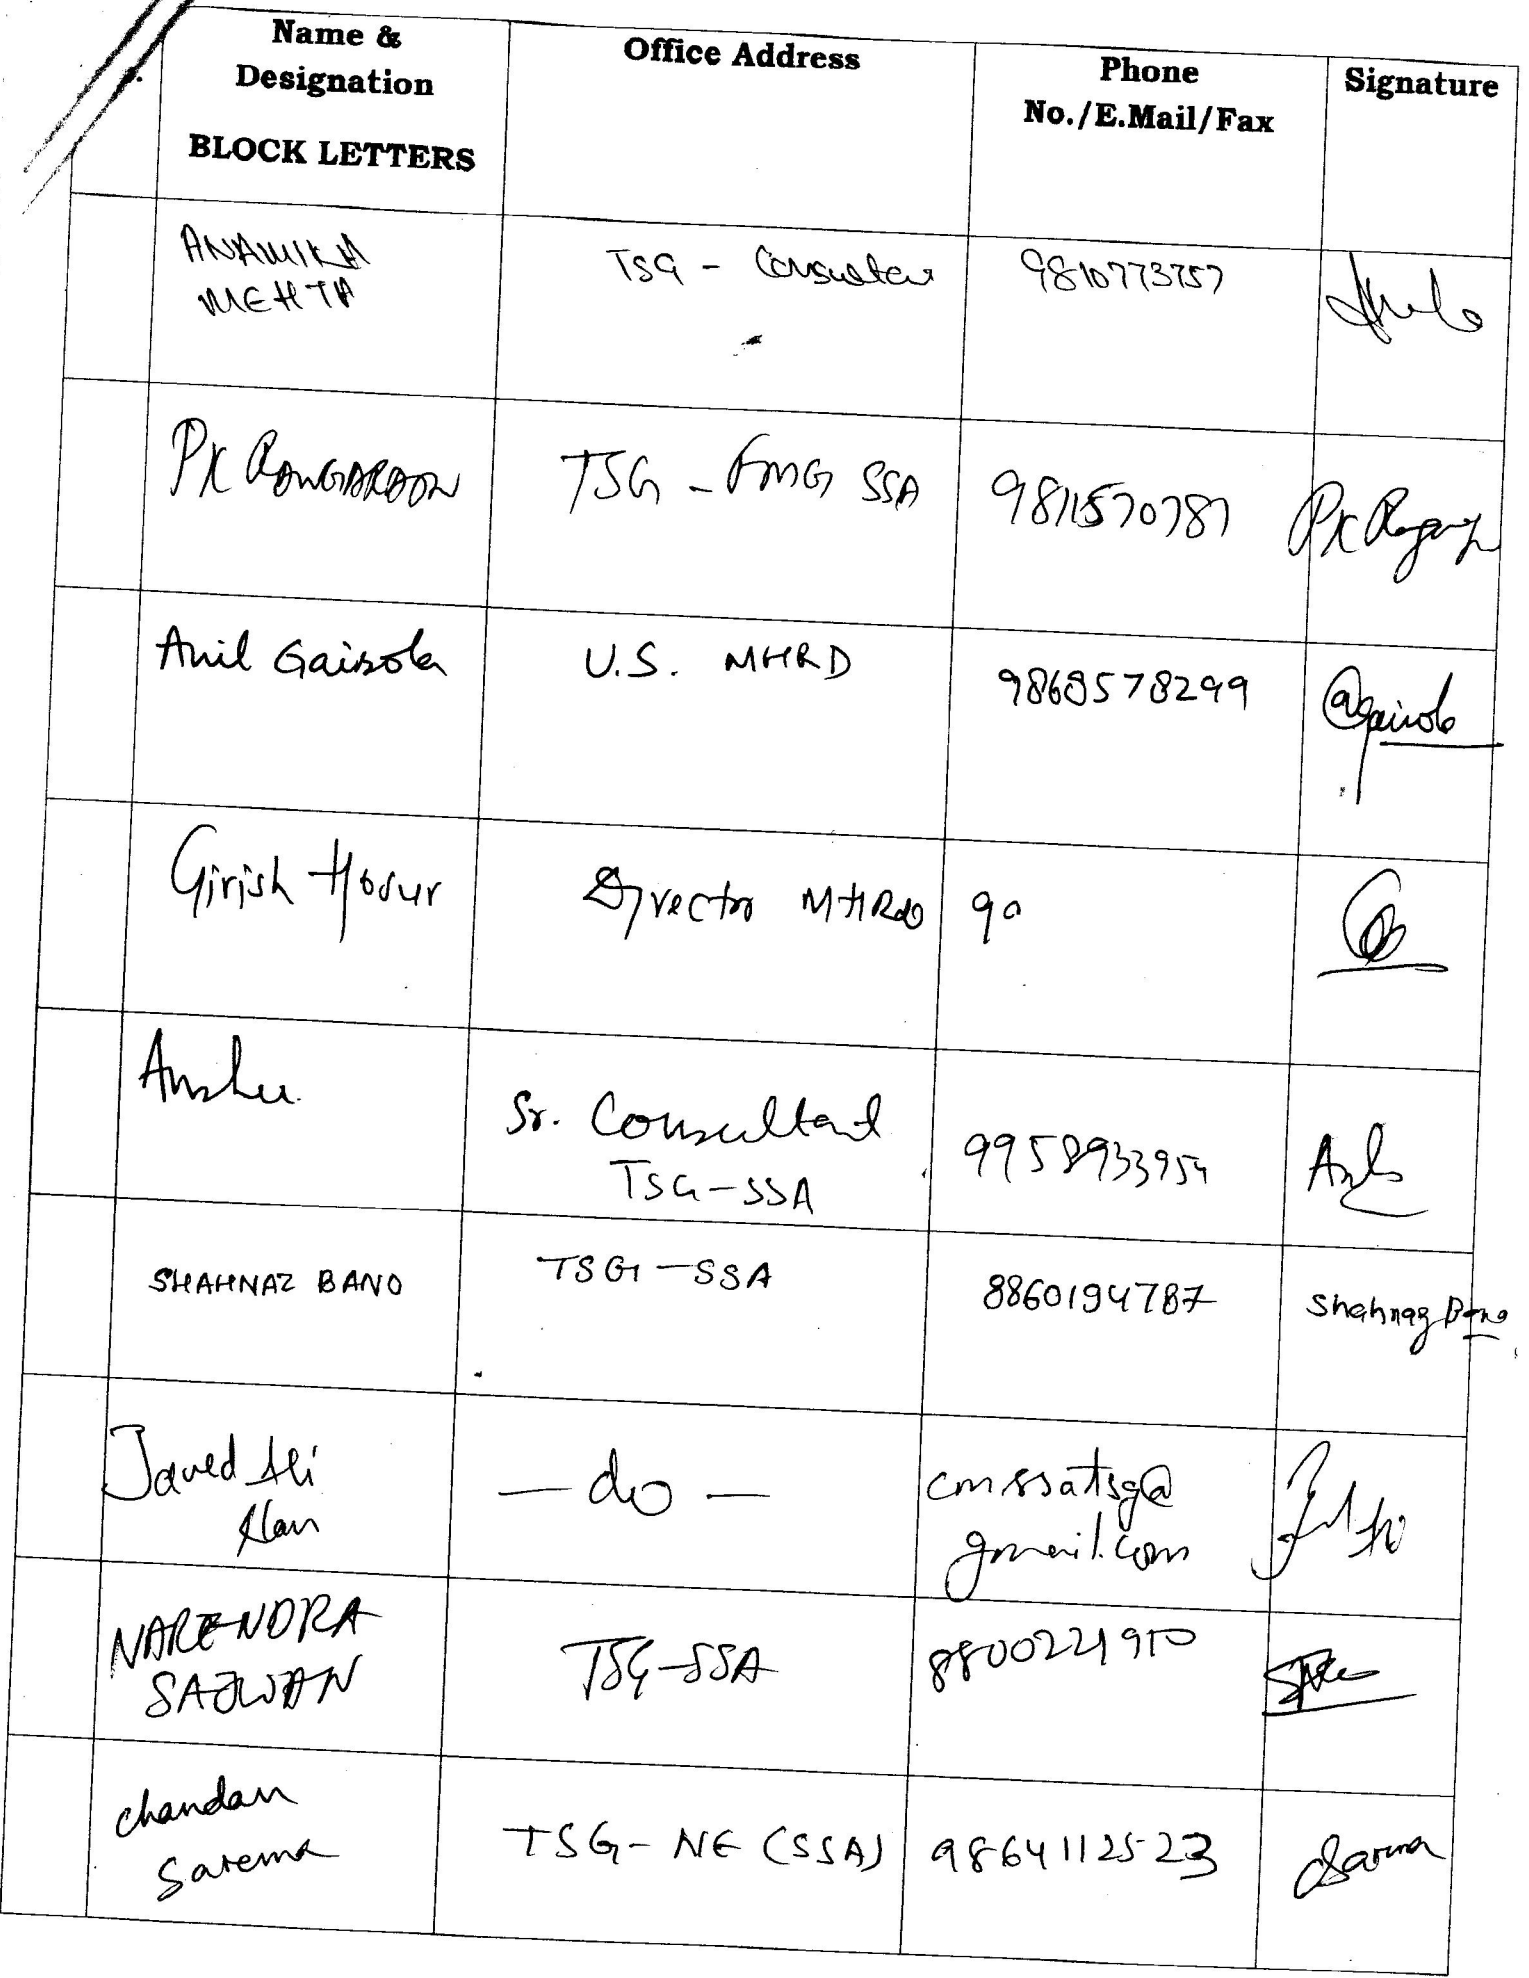 Name &
Designation
BLOCK LETTERS
Office Address
Phone
No./E.Mail/Fax
Signature
ANAMIKA
MEHTA
TSG - Consultant
9810773757
PK RANGARAJAN
TSG - FMG SSA
9811570787
PK
Anil Gairola
U.S. MHRD
9868578299
Gairola
Girish Hosur
Director MHRD
90
Anshu
Sr. Consultant
TSG-SSA
9958933954
SHAHNAZ BANO
TSG-SSA
8860194787
Shahnaz Bano
Javed Ali
- do -
cmssatsg@
gmail.com
NARENDRA
SAJWAN
TSG-SSA
8800221950
Chandan
Sarema
TSG- NE (SSA)
9864112523
Sarma